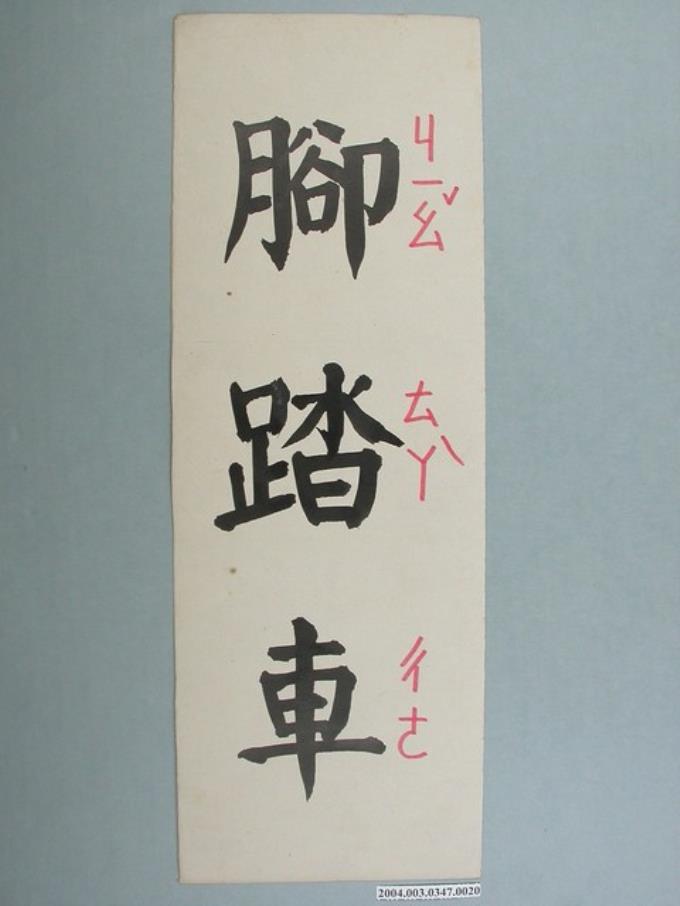 腳 ㄐㄧㄠˇ
踏 ㄊㄚˋ
車 ㄔㄜ
2004.003.0347.0020